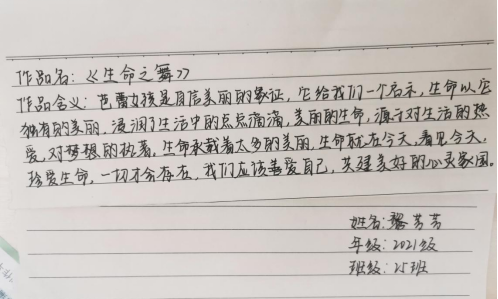 作品名：《生命之舞》
作品含义：芭蕾女孩是自信美丽的象征，它给我们一个启示，生命以它
独有的美丽，浸润了生活中的点点滴滴，美丽的生命，源于对生活的热
爱，对梦想的执着，生命承载着太多的美丽，生命就在今天，看见今天，
珍爱生命，一切才会存在，我们应该善爱自己，共建美好的心灵家园。
姓名：黎芳芳
年级：2021级
班级：25班